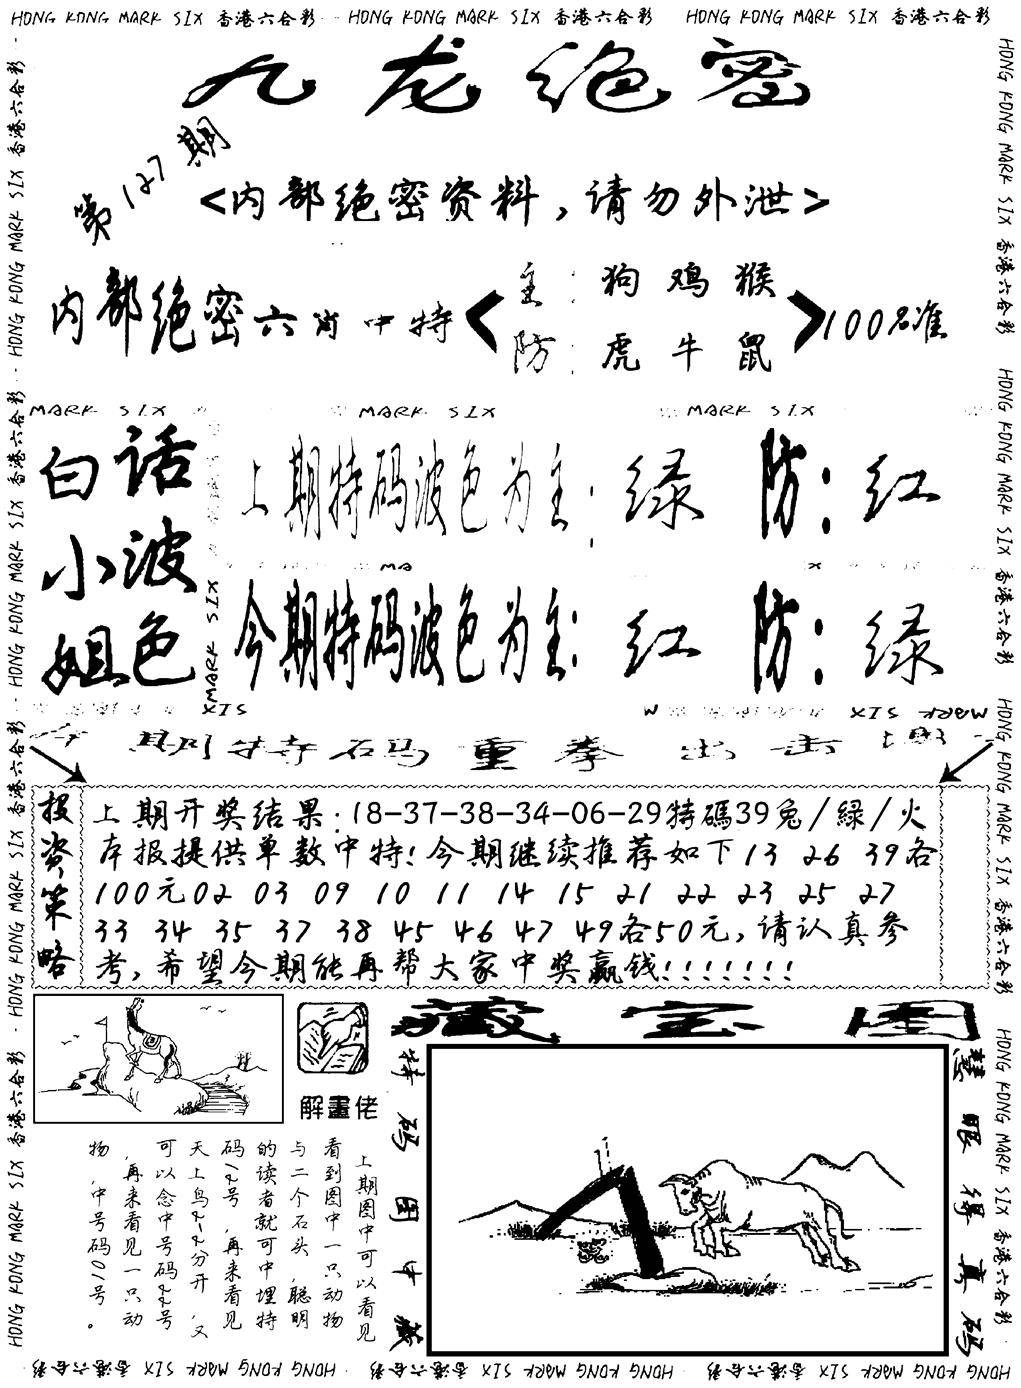 HONG KONG MARK SIX 香港六合彩 HONG KONG MARK SIX 香港六合彩 HONG KONG MARK SIX 香港六合彩
九龙绝密
第127期
<内部绝密资料，请勿外泄>
内部绝密六肖中特
主：狗 鸡 猴
防：虎 牛 鼠
100%准
MARK SIX MARK SIX MARK SIX
白话
小波
姐色
上期特码波色为主：绿 防：红
今期特码波色为主：红 防：绿
MARK SIX
今期特码重拳出击
投资策略
上期开奖结果：18-37-38-34-06-29特碼39兔/緑/火
本报提供单数中特！今期继续推荐如下13 26 39各
100元02 03 09 10 11 14 15 21 22 23 25 27
33 34 35 37 38 45 46 47 49各50元，请认真参
考，希望今期能再帮大家中奖赢钱！！！！！！！
解畫佬
上期图中可以看见
看到图中一只动物
与二个石头，聪明
的读者就可中埋特
码12号，再来看见
天上鸟2-2分开，又
可以念中号码22号
，再来看见一只动
物，中号码10号。
藏宝图
特码图中藏
慧眼得真码
HONG KONG MARK SIX 香港六合彩 HONG KONG MARK SIX 香港六合彩 HONG KONG MARK SIX 香港六合彩